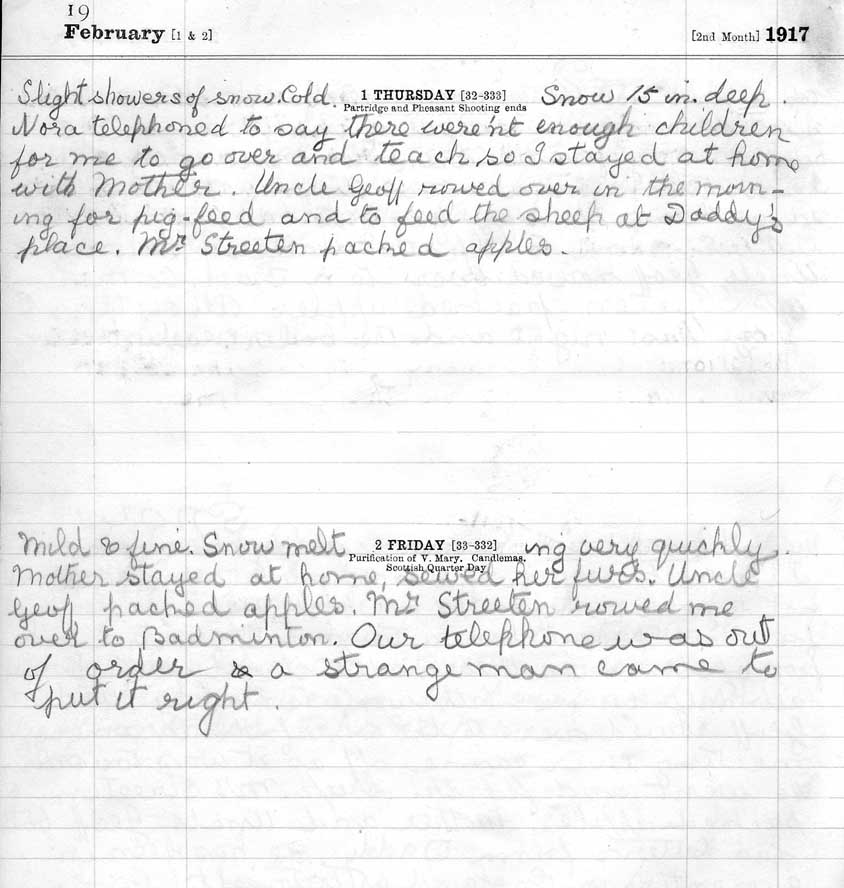 19
February [1 & 2] [2nd Month] 1917
Slight showers of snow. Cold. 1 THURSDAY [32-333] Snow 15 in. deep.
Partridge and Pheasant Shooting ends
Nora telephoned to say there were'nt enough children
for me to go over and teach so I stayed at home
with Mother. Uncle Geoff rowed over in the morn-
ing for pig-feed and to feed the sheep at Daddy's
place. Mr Streeten packed apples.
Mild & fine. Snow melt 2 FRIDAY [33-332] ing very quickly.
Purification of V. Mary. Candlemas.
Scottish Quarter Day
Mother stayed at home, sewed her furs. Uncle
Geoff packed apples. Mr Streeten rowed me
over to Badminton. Our telephone was out
of order & a strange man came to
put it right.